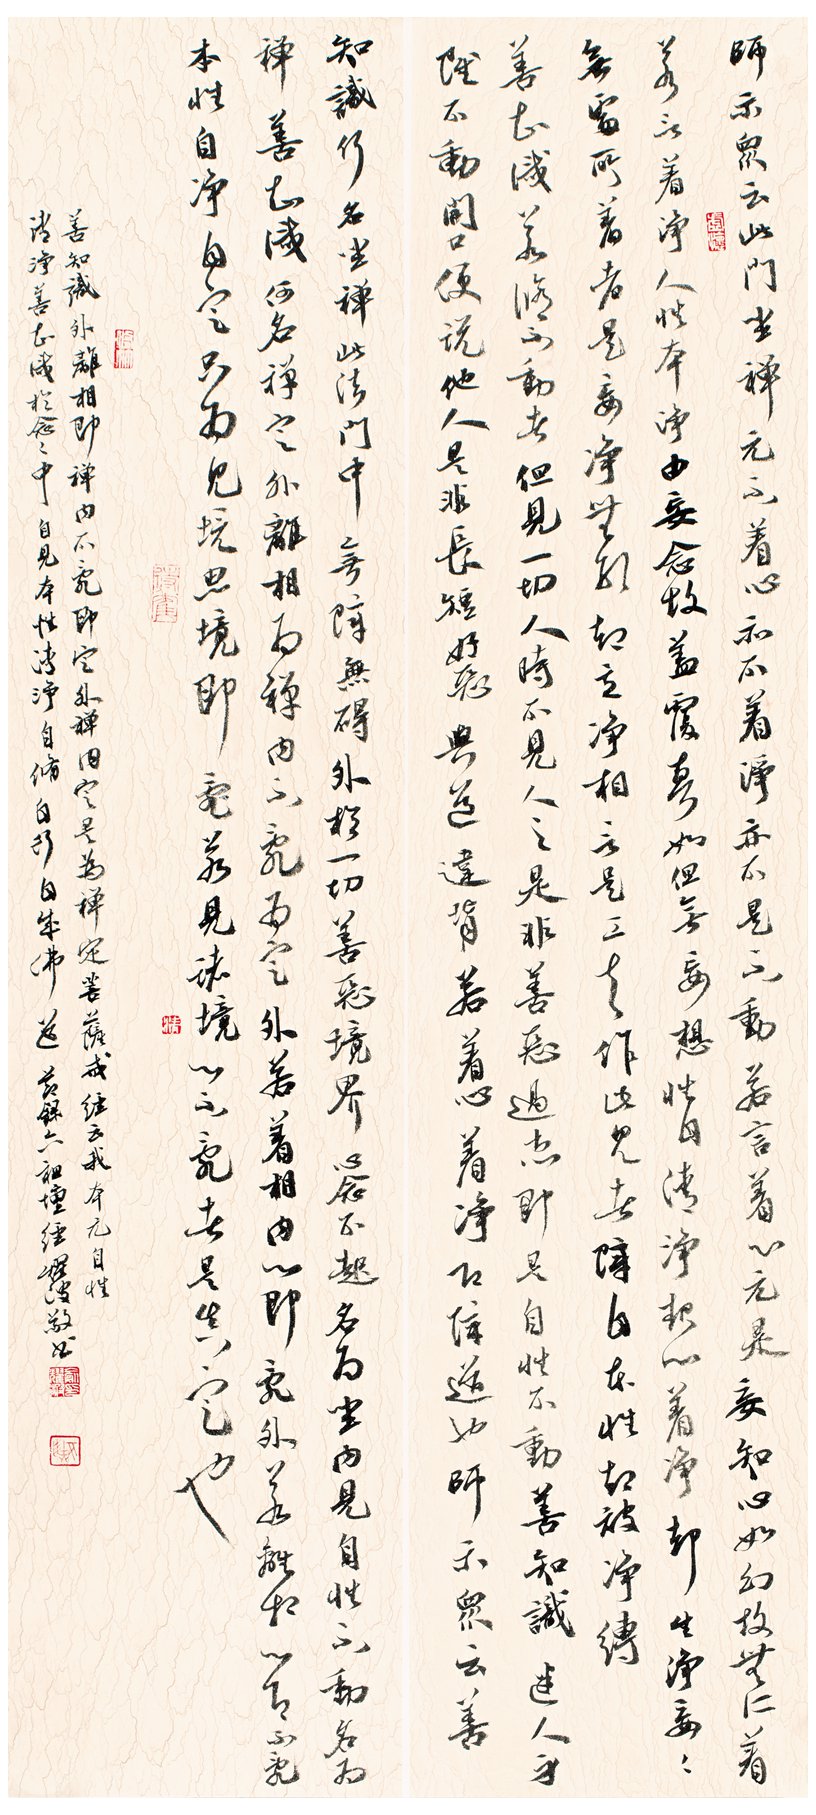 師示眾云此門坐禪元不着心亦不着淨亦不是不動若言着心元是妄知心如幻故無所着
若言着淨人性本淨由妄念故蓋覆真如但無妄想性自清淨起心着淨却生淨妄妄
無處所着者是妄淨無形却立淨相言是工夫作此見者障自本性却被淨縛
善知識若修不動者但見一切人時不見人之是非善惡過患即是自性不動善知識迷人身
雖不動開口便說他人是非長短好惡與道違背若着心着淨即障道也師示眾云善
知識何名坐禪此法門中無障無礙外於一切善惡境界心念不起名為坐內見自性不動名為
禪善知識何名禪定外離相為禪內不亂為定外若着相內心即亂外若離相心即不亂
本性自淨自定只為見境思境即亂若見諸境心不亂者是真定也
善知識外離相即禪內不亂即定外禪內定是為禪定菩薩戒經云我本元自性
清淨善知識於念念中自見本性清淨自修自行自成佛道 節錄六祖壇經 敬書